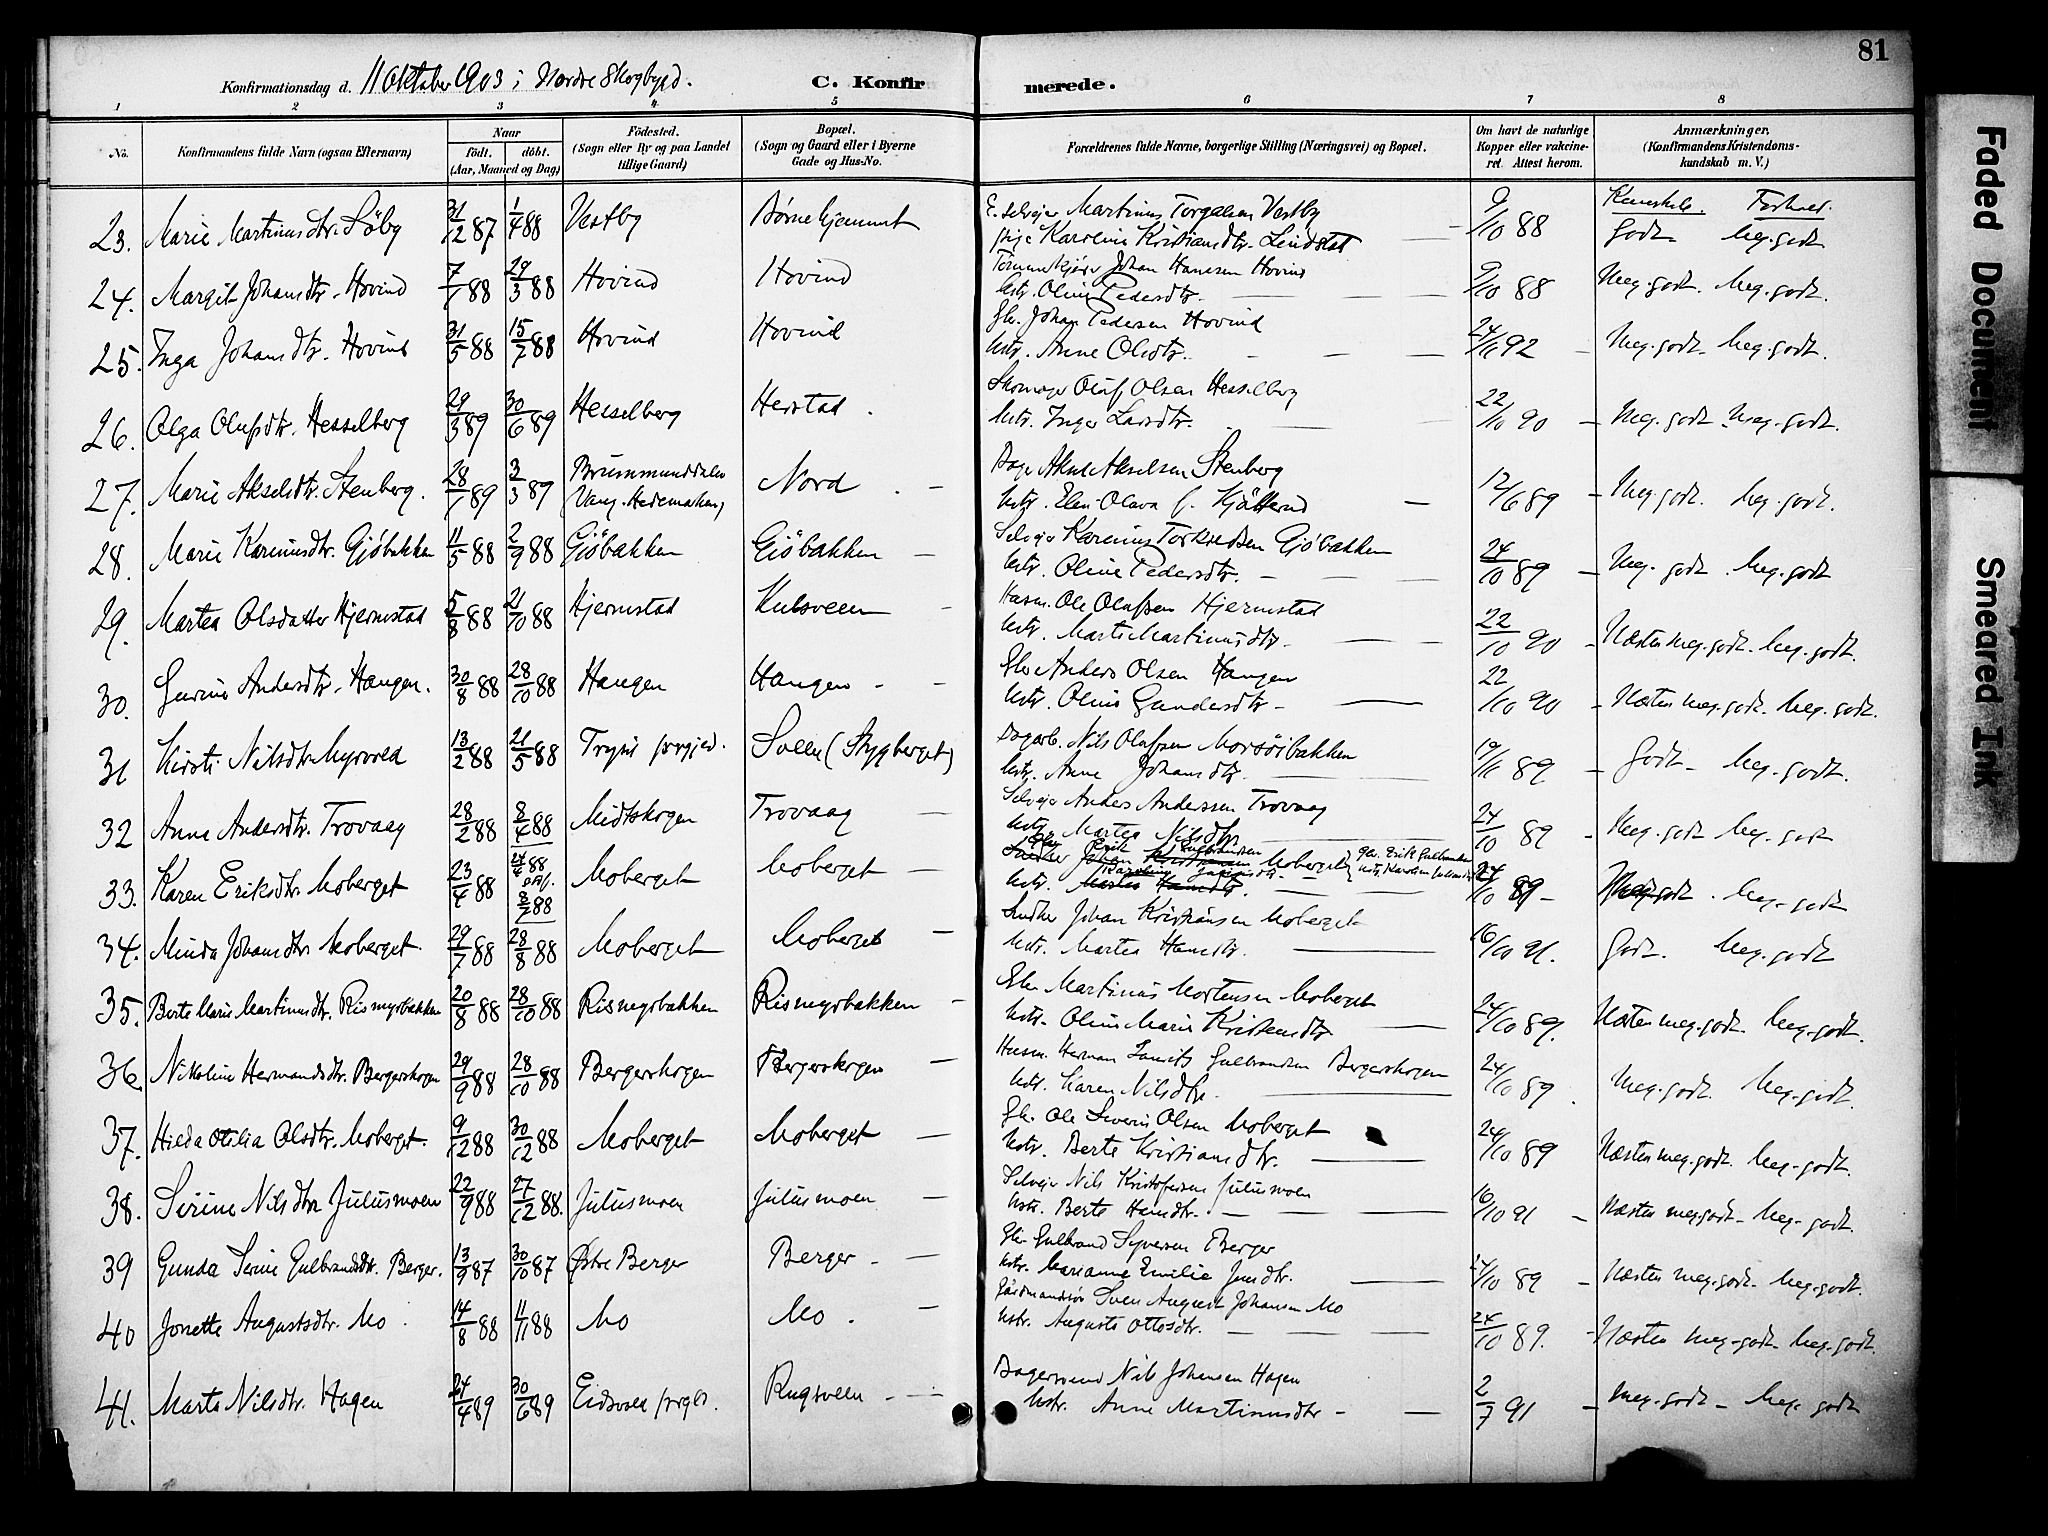 81
Konfirmationsdag d. 11 Oktober 1903 i Nordre Skogbygd.
C. Konfirmerede.
1 2 3 4 5 6 7 8
No. Konfirmandens fulde Navn (ogsaa Efternavn) Naar födt. döbt. (Aar, Maaned og Dag) Födested. (Sogn eller By og paa Landet tillige Gaard) Bopæl. (Sogn og Gaard eller i Byerne Gade og Hus-No. Forældrenes fulde Navne, borgerlige Stilling (Næringsvei) og Bopæl. Om havt de naturlige Kopper eller vakcineret. Attest herom. Anmærkninger, (Konfirmandens Kristendomskundskab m. V.)
Kundskab. Forhold.
23. Marie Martinusdtr. Söby 31/12 87 1/4 88 Vestby Börnehjemmet E. Selveier Martinus Torgalsen Vestby 9/10 88 Godt. Meg. godt
pige Karoline Kristiansdtr. Lindstad
24. Margit Johansdtr. Hovind 7/1 88 29/3 88 Hovind Hovind Johan Hansen Hovind 9/10 88 Meg. godt. Meg. godt.
Ustr. Oline Pedersdtr.
25. Inga Johansdtr. Hovind 31/5 88 15/7 88 Hovind Hovind Gbr. Johan Pedersen Hovind 24/11 92 Meg. godt. Meg. godt.
Ustr. Anne Olsdtr.
26. Olga Olufsdtr. Hesselberg 29/3 89 30/6 89 Hesselberg Herstad. Skomager Oluf Olsen Hesselberg 22/10 90 Meg. godt. Meg. godt.
Ustr. Inger Larsdtr.
27. Marie Akselsdtr. Stenberg. 28/1 89 3/3 89 Brummunddalen Vang. Hedemarken Nord. Aksel Akselsen Stenberg 12/6 89 Meg. godt. Meg. godt.
Ustr. Elen Olava f.
28. Marie Kareniusdtr. Gjöbakken 11/5 88 2/9 88 Gjöbakken Gjöbakken Selveier Karenius Torkildsen Gjöbakken 24/10 89 Meg. godt. Meg. godt
Ustr. Oline Pedersdtr.
29. Martea Olsdatter Hjermstad 5/8 88 21/10 88 Hjermstad Kulsveen Husm. Ole Olafsen Hjermstad 22/10 90 Næsten meg. godt. Meg. godt.
Ustr. Marte Martinusdtr.
30. Gurine Andersdtr. Haugen. 30/8 88 28/10 88 Haugen Haugen Gbr. Anders Olsen Haugen 22/10 90 Næsten meg. godt. Meg. godt.
Ustr. Oline Gundersdtr.
31 Kirsti Nilsdtr. Myrvold 13/2 88 21/5 88 Trysil prgjed. Sveen (Stygberget) Dagarb. Nils Olafsen 19/11 89 Godt. Meg. godt.
Ustr. Anne Johansdtr.
32 Anna Andersdtr. Trovaag 28/2 88 8/4 88 Midtskogen Trovaag Selveier Anders Anderssen Trovaag 24/10 89 Meg. godt. Meg. godt
Ustr. Martea Nilsdtr.
33. Karen Eriksdtr. Moberget 23/4 88 Moberget Moberget Gbr. Erik Gulbrandsen Moberget 24/10 89 Meg. godt. Meg. godt
34. Minda Johansdtr. Moberget 29/7 88 28/8 88 Moberget Moberget Johan Kristiansen Moberget 16/10 91. Godt. Meg. godt
Ustr. Martea Hansdtr.
35. Berte Marie Martinusdtr. Rismyrbakken 20/8 88 28/10 88 Rismyrbakken Rismyrbakken Gbr. Martinus Mortensen Moberget 24/10 89. Næsten meg. godt. Meg. godt.
Ustr. Oline Marie Kristensdtr
36. Nikoline Hermandsdtr. Bergerskogen 29/9 88 28/10 88 Bergerskogen Bergerskogen Husm. Herman Laurits Gulbrandsen Bergerskogen 24/10 89. Meg. godt. Meg. godt.
Ustr. Karen Nilsdtr.
37. Hilda Otilia Olsdtr. Moberget. 9/12 88 30/12 88 Moberget Moberget Gbr. Ole Severin Olsen Moberget 24/10 89 Næsten meg. godt. Meg. godt.
Ustr. Berte Kristiansdtr.
38. Serine Nilsdtr. Julusmoen 22/9 88 27/12 88. Julusmoen Julusmoen Selveier Nils Kristofersen Julusmoen 16/10 91 Næsten meg. godt. Meg. godt.
Ustr. Berte Hansdtr.
39 Gunda Serine Gulbrandsdtr. Berger. 13/9 87 30/10 87 Østre Berger Berger Gbr. Gulbrand Syversen Berger 24/10 89 Næsten meg. godt. Meg. godt.
Ustr. Marianne Emilie Jensdtr.
40 Jonette Augustsdtr. Mo 14/8 88 11/11 88 Mo Mo. Sven August Johansen Mo 24/10 89. Næsten meg. godt. Meg. godt.
Ustr. Auguste Ottosdtr.
41. Marte Nilsdtr. Hagen 24/4 89 30/6 89 Eidsvold prgld. Rugsveen Nils Johansen Hagen 2/7 91 Meg. godt. Meg. godt
Ustr. Anne Martinusdtr
Faded Document
Smeared Ink